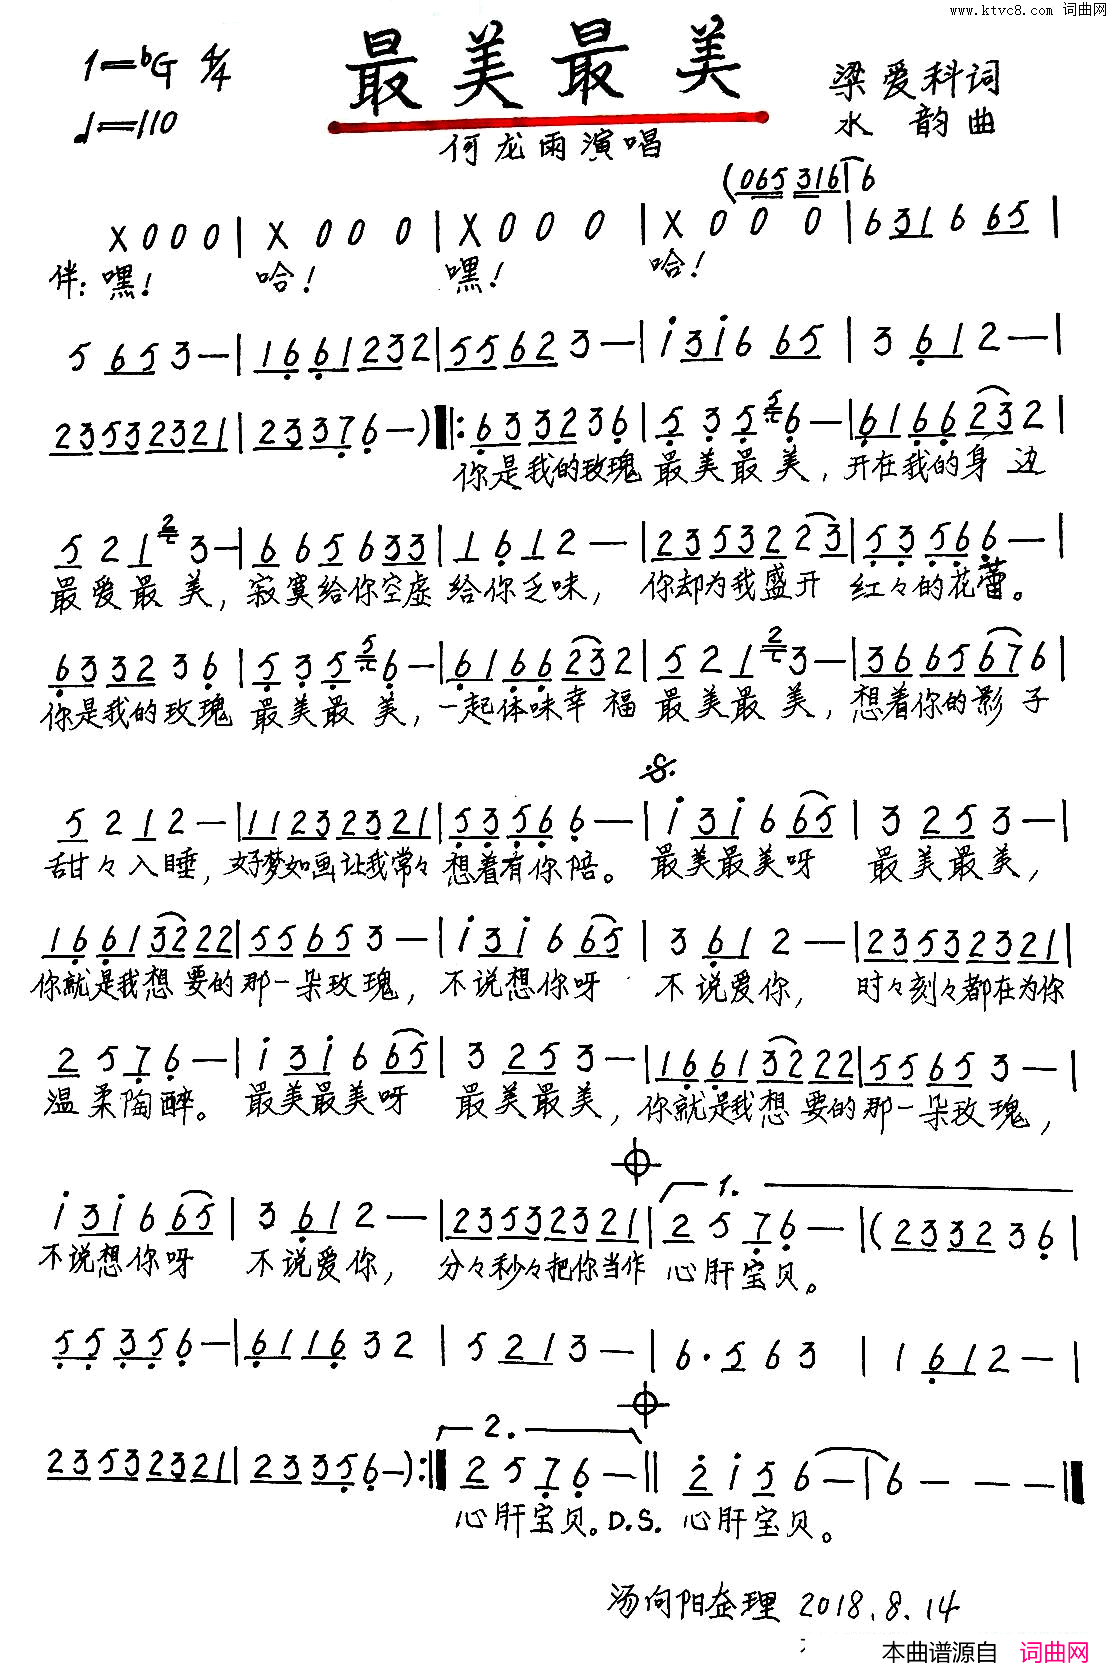 www.ktvc8.com 词曲网
1=♭G 4/4
最美最美
梁爱科词
♩=110
水 韵曲
何龙雨演唱
(065 316 | 6
X 0 0 0 | X 0 0 0 | X 0 0 0 | X 0 0 0 | 6 31 6 65 |
伴:嘿! 哈! 嘿! 哈!
5 65 3 — | 166123 2 | 5562 3 — | i 3i 6 65 | 3 61 2 — |
23532321 | 23376 — ) ‖: 633236 | 5 3 5 5 6 — | 6166232 |
你是我的玫瑰 最美最美, 开在我的身边
5 2 1 2 3 — | 6 6 5 6 33 | 1 6 1 2 — | 23532 2 3 | 5 3 5 6 6 — |
最爱最美, 寂寞给你空虚 给你乏味, 你却为我盛开 红々的花蕾。
6332 3 6 | 5 3 5 5 6 — | 6166232 | 5 2 1 2 3 — | 3665676 |
你是我的玫瑰 最美最美, 一起体味幸福 最美最美, 想着你的影子
5 2 1 2 — | 11232321 | 5 3 5 6 6 — | i 3i 6 65 | 3 25 3 — |
甜々入睡, 好梦如画让我常々 想着有你陪。 最美最美呀 最美最美,
1661 32222 | 5565 3 — | i 3i 6 65 | 3 61 2 — | 23532321 |
你就是我想要的那一朵玫瑰, 不说想你呀 不说爱你, 时々刻々都在为你
2 5 7 6 — | i 3i 6 65 | 3 25 3 — | 1661 32222 | 5565 3 — |
温柔陶醉。 最美最美呀 最美最美, 你就是我想要的那一朵玫瑰,
1.
i 3i 6 65 | 3 61 2 — | 23532321 | 2 5 7 6 — | ( 2332 3 6 |
不说想你呀 不说爱你, 分々秒々把你当作 心肝宝贝。
55356 — | 6116 3 2 | 5 21 3 — | 6 · 5 6 3 | 1 61 2 — |
2.
23532321 | 23356 — ) :‖ 2 5 7 6 — ‖ 2 i 5 6 — | 6 — — — ‖
心肝宝贝。D.S. 心肝宝贝。
汤向阳整理 2018.8.14
本曲谱源自 词曲网